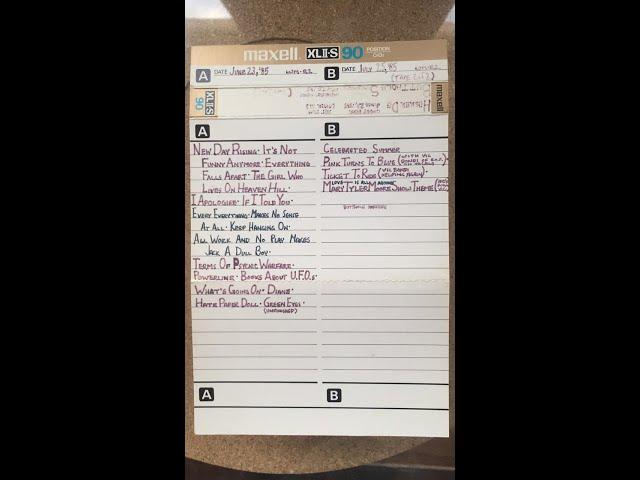 maxell XLII-S 90 POSITION
A DATE JUNE 23,'85
B DATE JULY 25,'85
(TAPE 2 OF 2)
maxell
XLII-S
90
A
NEW DAY RISING · IT'S NOT
FUNNY ANYMORE · EVERYTHING
FALLS APART · THE GIRL WHO
LIVES ON HEAVEN HILL ·
I APOLOGIZE · IF I TOLD YOU ·
EVERY EVERYTHING · MAKES NO SENSE
AT ALL · KEEP HANGING ON ·
ALL WORK AND NO PLAY MAKES
JACK A DULL BOY ·
TERMS OF PSYCHIC WARFARE ·
POWERLINE · BOOKS ABOUT U.F.O.s ·
WHAT'S GOING ON · DIANE ·
HATE PAPER DOLL · GREEN EYES ·
(UNFINISHED)
B
CELEBRATED SUMMER
PINK TURNS TO BLUE (WITH VIC
TICKET TO RIDE (VIC BONDI
HELPING AGAIN)
LOVE IS ALL AROUND
MARY TYLER MOORE SHOW THEME
A
B